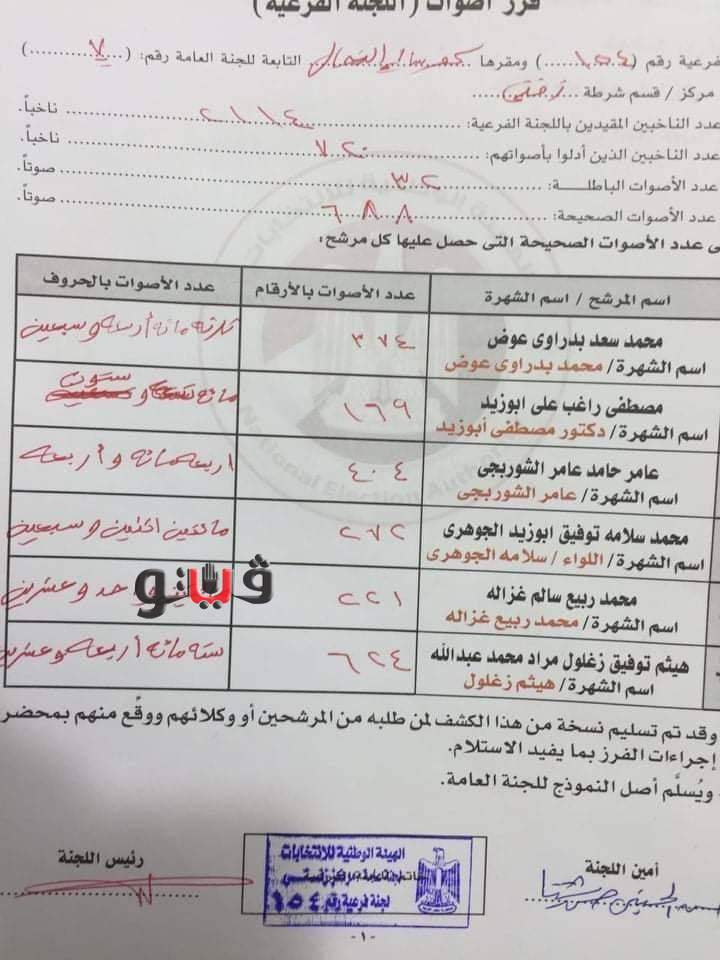 فرز أصوات (اللجنة الفرعية)
فرعية رقم (١٥٤) ومقرها ........ التابعة للجنة العامة رقم: (٧)
مركز / قسم شرطة ........
عدد الناخبين المقيدين باللجنة الفرعية: ٢١١٤ ناخباً.
عدد الناخبين الذين أدلوا بأصواتهم: ٧٢٠ ناخباً.
عدد الأصوات الباطلة: ٣٢ صوتاً.
عدد الأصوات الصحيحة: ٦٨٨ صوتاً.
عدد الأصوات الصحيحة التى حصل عليها كل مرشح:
اسم المرشح / اسم الشهرة عدد الأصوات بالأرقام عدد الأصوات بالحروف
محمد سعد بدراوى عوض
اسم الشهرة/ محمد بدراوى عوض
٣٧٤ ثلاثمائه أربعه وسبعين
مصطفى راغب على ابوزيد
اسم الشهرة/ دكتور مصطفى أبوزيد
١٦٩ مائه وستون
عامر حامد عامر الشوربجى
اسم الشهرة/ عامر الشوربجى
٤٠٤ اربعمائه وأربعه
محمد سلامه توفيق ابوزيد الجوهرى
اسم الشهرة/ اللواء / سلامه الجوهرى
٢٧٢ مائتين اثنين وسبعين
محمد ربيع سالم غزاله
اسم الشهرة/ محمد ربيع غزاله
٢٢١ واحد وعشرين
هيثم توفيق زغلول مراد محمد عبدالله
اسم الشهرة/ هيثم زغلول
٦٢٤ ستمائه أربعه وعشرين
ڤيتو
National Election Authority
وقد تم تسليم نسخة من هذا الكشف لمن طلبه من المرشحين أو وكلائهم ووقع منهم بمحضر
إجراءات الفرز بما يفيد الاستلام.
ويُسلَّم أصل النموذج للجنة العامة.
أمين اللجنة
رئيس اللجنة
الهيئة الوطنية للانتخابات
لجنة فرعية رقم ١٥٤
-١-